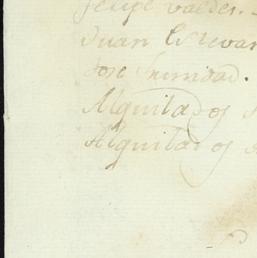 felipe valdes.
Juan Estevan
Jose trinidad.
Alquilados
Alquilados